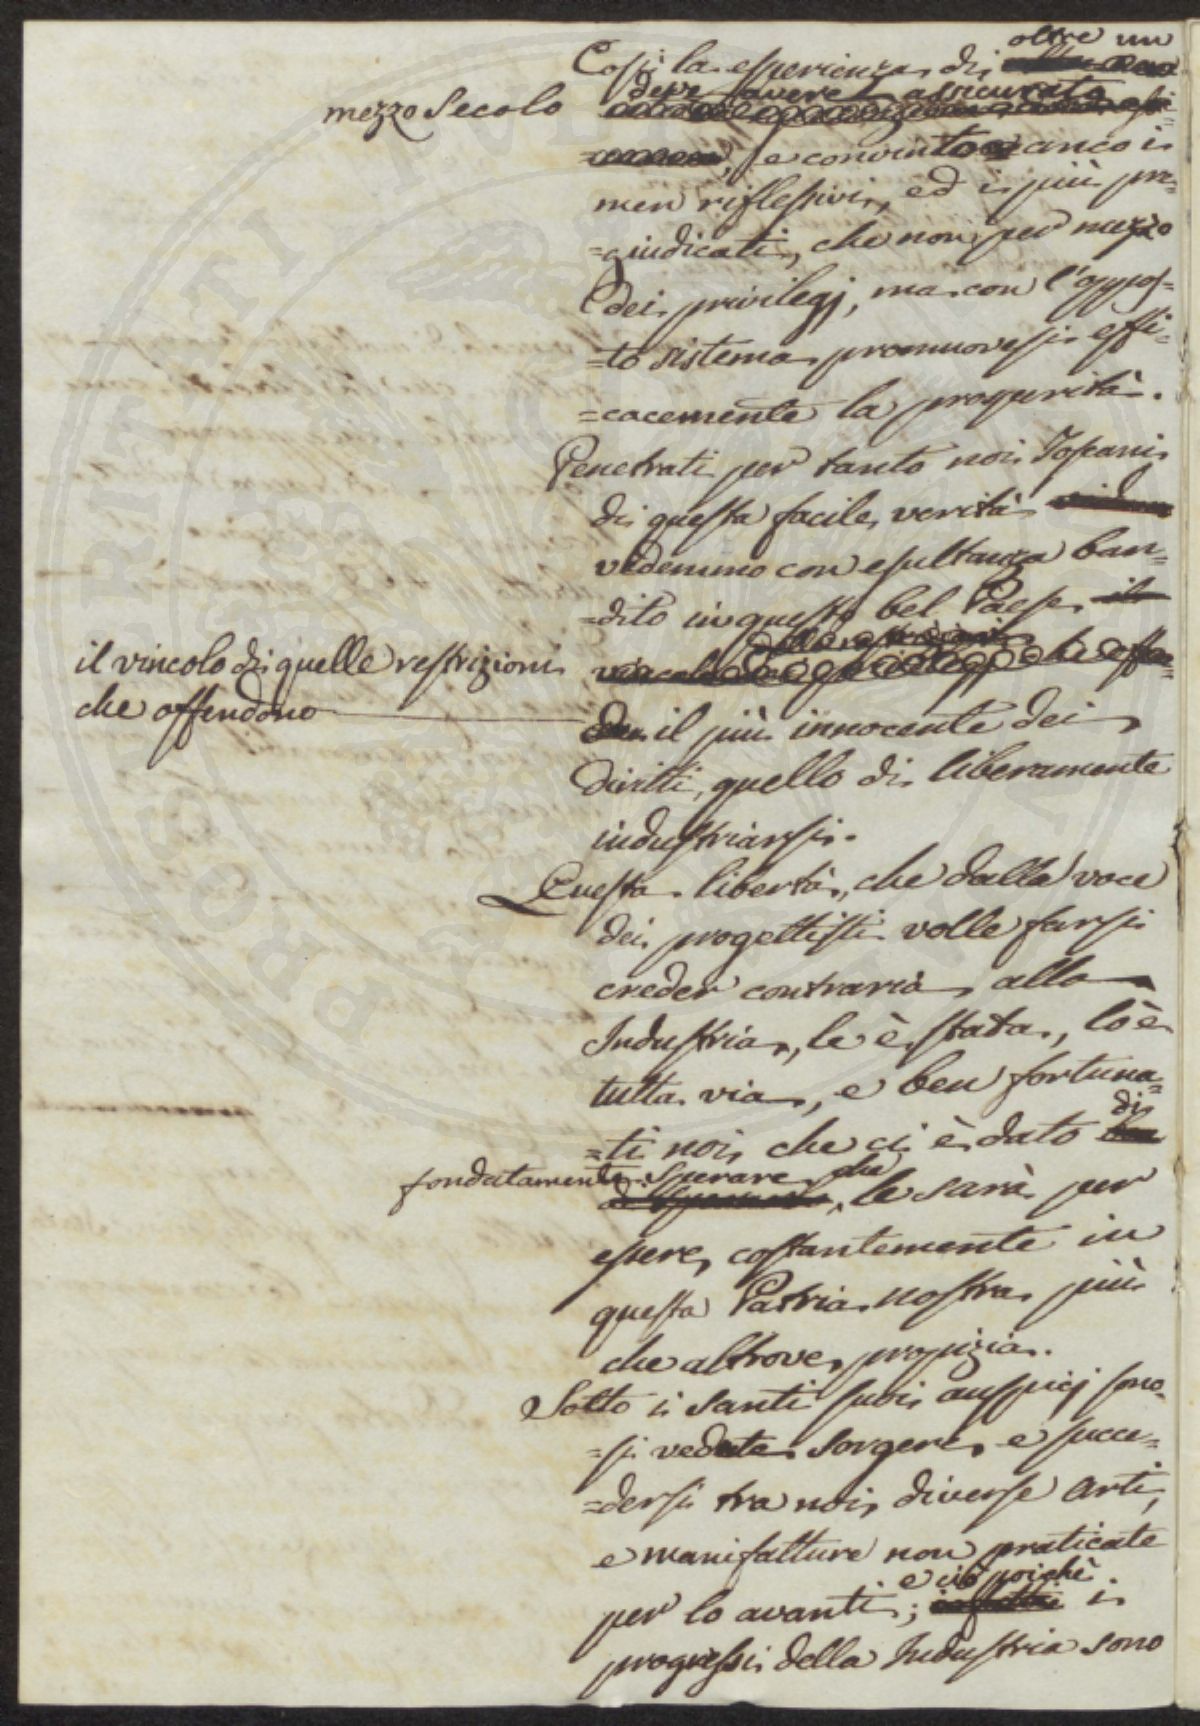 oltre un
Così la esperienza di
mezzo Secolo
deve avere assicurato
e convinto anco i
men riflessivi, ed i più pre=
=giudicati, che non per mezzo
dei privilegj, ma con l'oppos=
=to sistema promuovesi effi=
=cacemente la prosperità.
Penetrati per tanto noi Toscani
di questa facile verità
vedemmo con esultanza ban=
=dito in questo bel Paese il
delle restrizioni
il vincolo di quelle restrizioni
vincolo dei privilegj che offen=
che offendono
il più innocente dei
diritti, quello di liberamente
industriarsi.
Questa libertà, che dalla voce
dei progettisti volle farsi
creder contraria alla
Industria, le è stata, lo è
tutta via, e ben fortuna=
=ti noi, che ci è dato
di
fondatamente sperare che
le sarà per
essere costantemente in
questa Patria nostra più
che altrove propizia.
Sotto i santi suoi auspicj sono=
=si vedute sorgere, e succe=
=dersi tra noi diverse arti,
e manifatture non praticate
e ciò poichè
per lo avanti; i
progressi della Industria sono
PROSPERITATI PUBLICAE